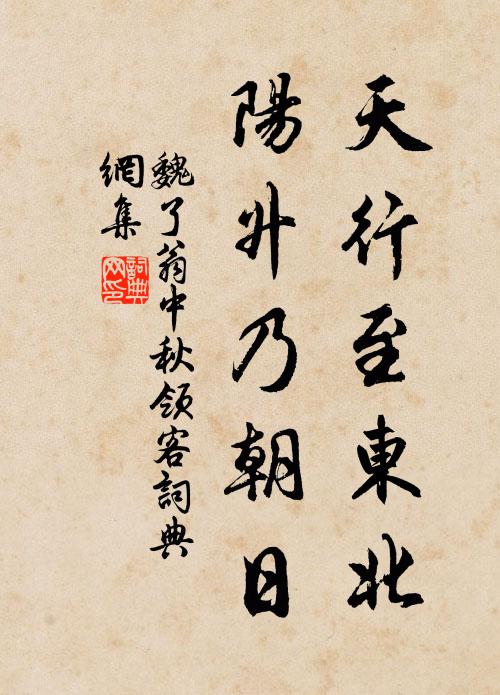 天行至東北
陽升乃朝日
魏了翁中秋領客詞典
網集
詞典
网印